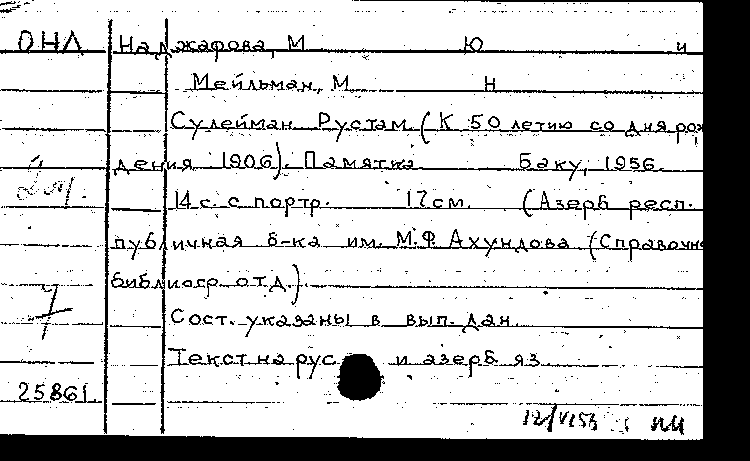 ОНЛ Наджафова, М Ю и
Мейльман, М Н
Сулейман Рустам. (К 50 летию со дня рож
дения 1906). Памятка Баку, 1956.
2 эк.
14 с. с портр. 17 см. (Азерб респ.
публичная б-ка им. М.Ф. Ахундова (Справочно
библиогр. отд.).
7
Сост. указаны в вып. дан.
Текст на рус и азерб яз.
25861